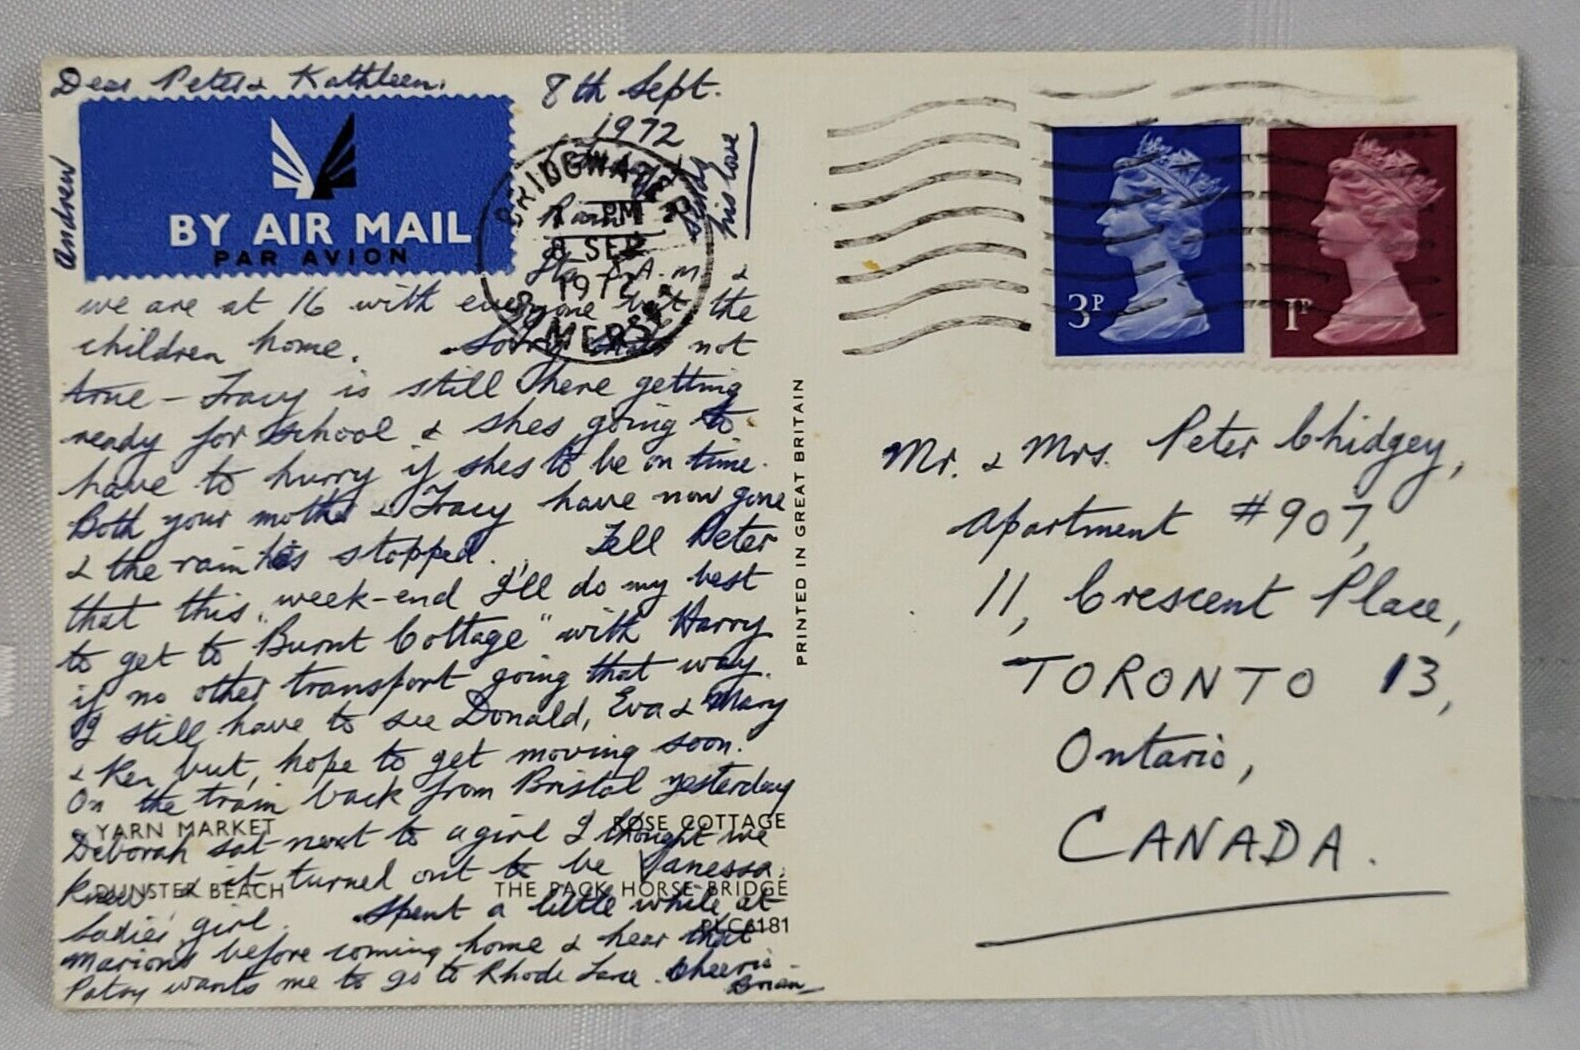 Dear Peter & Kathleen,
8th Sept.
1972
Andrew
sends
his love
BY AIR MAIL
PAR AVION
BRIDGWATER
PM
8 SEP
1972
SOMERSET
A.M. &
we are at 16 with everyone but the
children home. Sorry not
true – Tracy is still here getting
ready for school & shes going to
have to hurry if shes to be on time.
Both your mother & Tracy have now gone
& the rain has stopped. Tell Peter
that this week-end I'll do my best
to get to "Burnt Cottage" with Harry
if no other transport going that way.
I still have to see Donald, Eva & Mary
& Ken but, hope to get moving soon.
On the train back from Bristol yesterday
YARN MARKET
ROSE COTTAGE
Deborah sat next to a girl I thought we
knew & it turned out to be Vanessa,
DUNSTER BEACH
THE PACK HORSE BRIDGE
Sadies' girl. Spent a little while at
PLC6181
Marions before coming home & hear that
Patsy wants me to go to Rhode Lane. Cheerio
Brian
PRINTED IN GREAT BRITAIN
3P
1P
Mr. & Mrs. Peter Chidgey,
Apartment #907,
11, Crescent Place,
TORONTO 13,
Ontario,
CANADA.